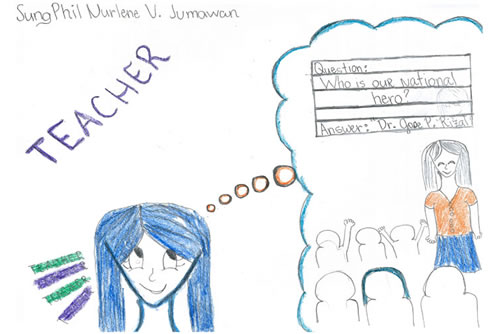 SungPhil Nurlene V. Jumawan
TEACHER
Question:
Who is our national
hero?
Answer: "Dr. Jose P. Rizal